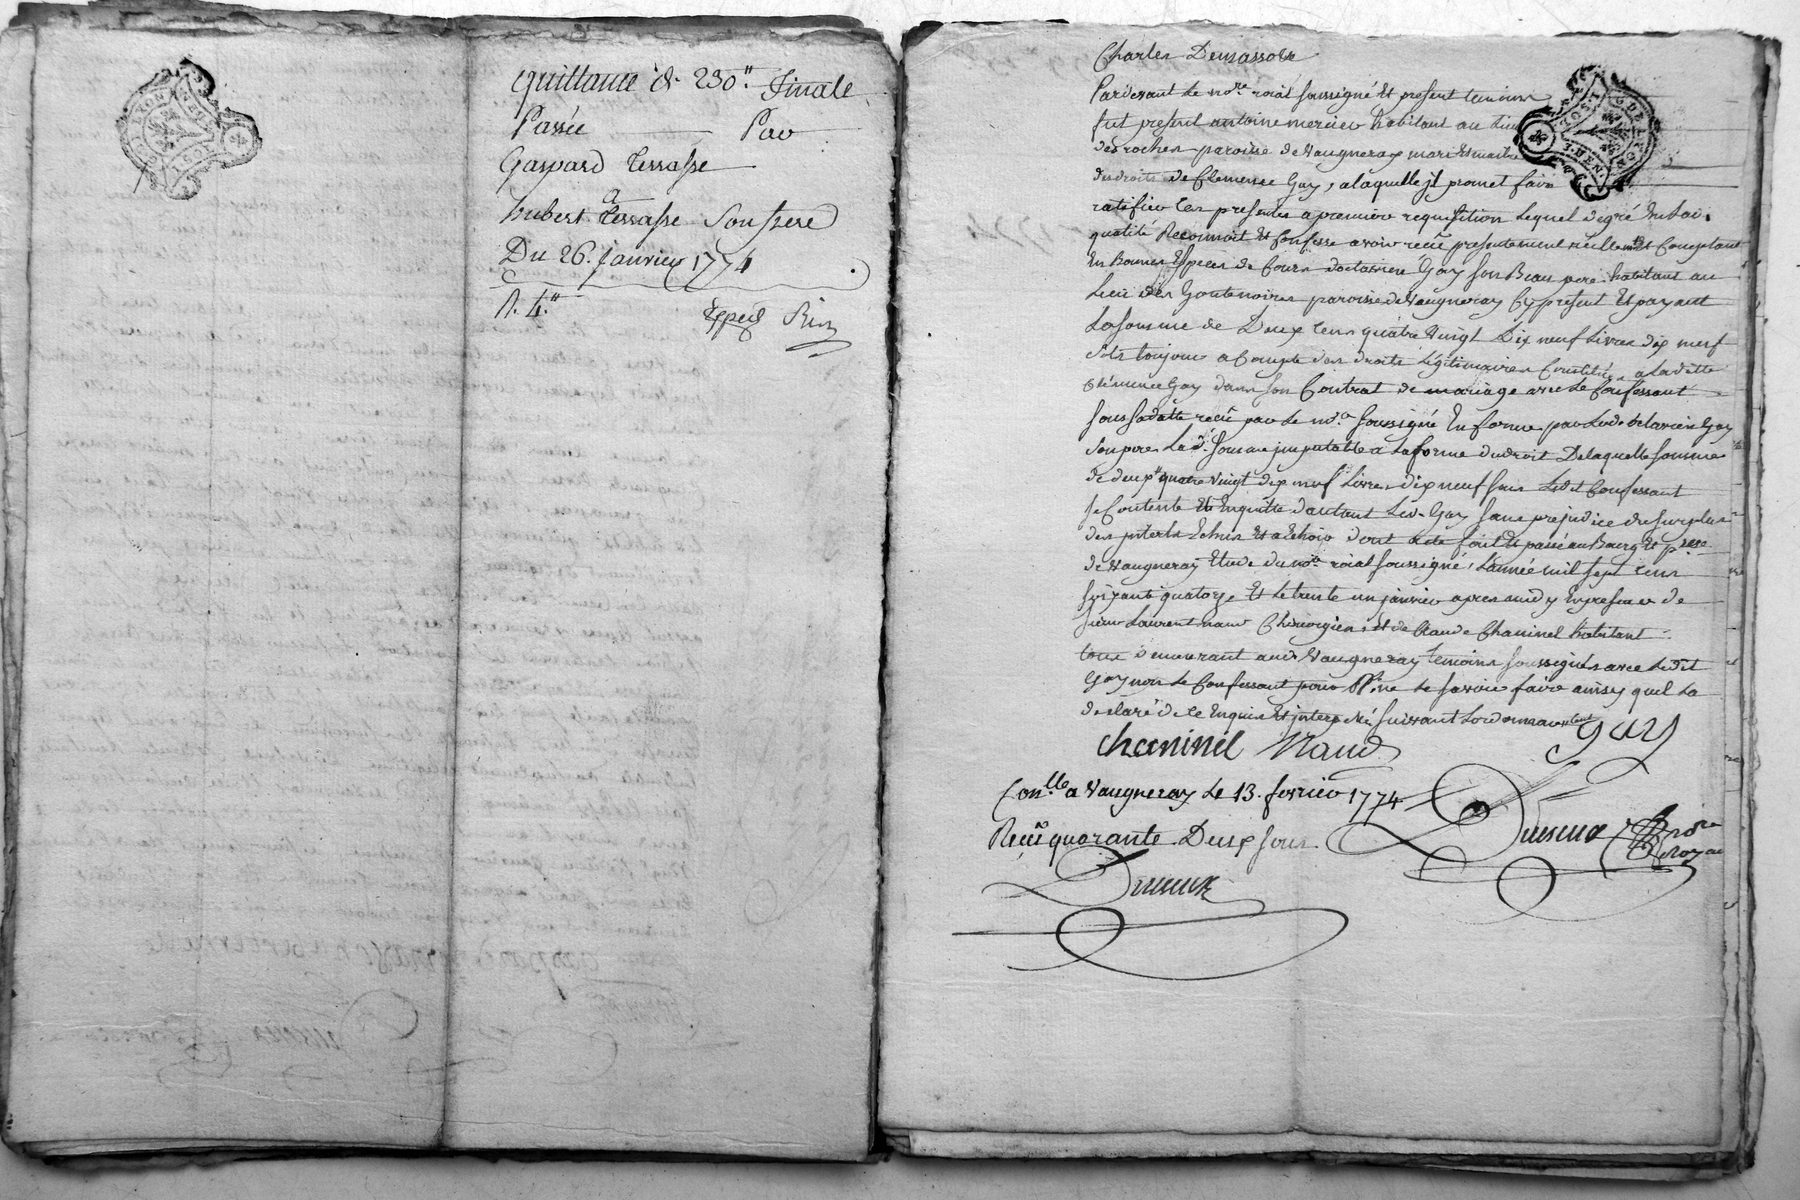 quittance de 230.₶ finale
Passée Par
Gaspard Terrasse
a
hubert Terrasse Son frere
Du 26. janvier 1774
R. 4.₶
Expedé
Charles Demassoze
Pardevant Le no.re roial soussigné Et present temoins
fut present antoine mercier habitant au Lieu
des roches paroisse de Vaugneray mari Et maitre
des droits de Clemence Gay, a laquelle jl promet faire
ratifier Les presentes a premiere requisition Lequel de gré En lad.
qualité Reconnoit Et Confesse avoir reçu presentement reellemt Et Comptant
En Bonnes Especes de Cours Gay son Beau pere habitant au
Lieu des Gouttenoires paroisse de Vaugneray Cy present Et payant
La somme de Deux Cens quatre Vingt Dix neuf Livres dix neuf
sols toujours a Compte des droits Légitimaires Constitués a Ladette
Clémence Gay dans son Contrat de mariage avec Le Confessant
sous sa datte reçu par Le no.e soussigné En forme par Led. Gay
son pere La d. somme imputable a La forme du droit De laquelle somme
de deux quatre Vingt dix neuf Livres dix neuf sous Ledit Confessant
se Contente Et Enquitte d'autant Led. Gay sans prejudice du surplus
des jnterets Echus Et a Echoir dont acte fait Et passé au Bourg Et p.sse
de Vaugneray Etude du no.re roial soussigné, L'année mil sept Cens
soixante quatorze Et Le trente un janvier apres midy En presence de
sieur Laurent naud Chirurgien, Et de Claude Chaninel habitant
tous demeurant aud. Vaugneray temoins soussignés avec Ledit
Gay non Le Confessant pour ne Le savoir faire ainsy quil La
declaré de Ce Enquis Et jnterpellé suivant Lordonnance
chaninel Naud gay
Con.lle a Vaugneray Le 13. fevrier 1774
Reçu quarante Deux sous